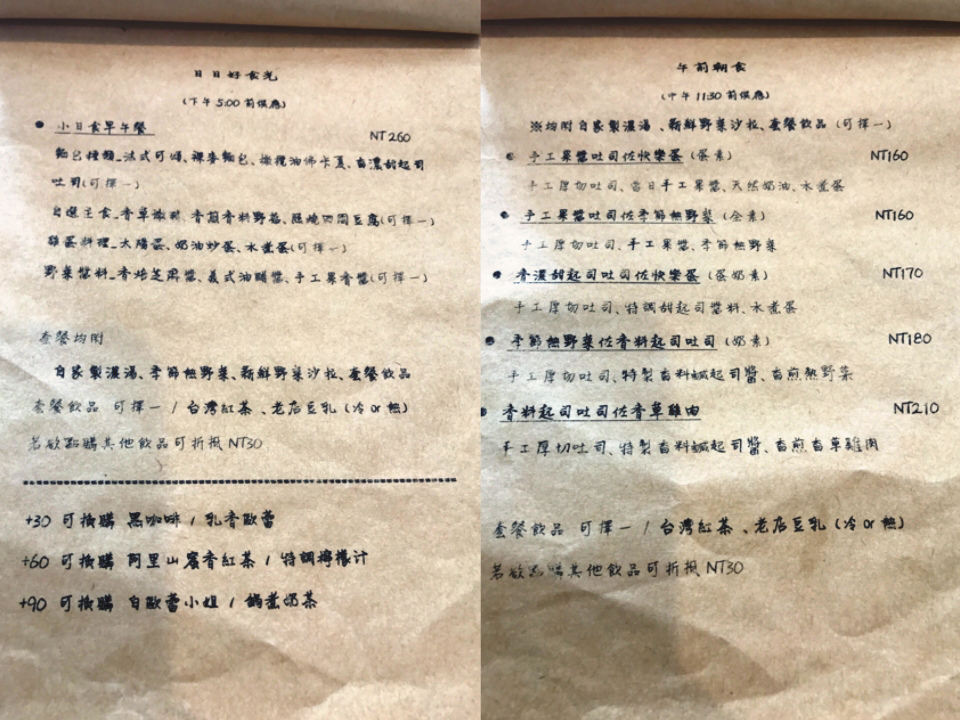 日日好食光
(下午 5:00 前供應)
小日食早午餐
NT 260
麵包種類_法式可頌、裸麥麵包、橄欖油佛卡夏、香濃甜起司
吐司(可擇一)
自選主食_香草嫩雞、香煎香料野菇、照燒四周豆腐(可擇一)
雞蛋料理_太陽蛋、奶油炒蛋、水煮蛋(可擇一)
野菜醬料_香焙芝麻醬、義式油醋醬、手工果香醬(可擇一)
套餐均附
自家製濃湯、季節熱野菜、新鮮野菜沙拉、套餐飲品
套餐飲品 可擇一 / 台灣紅茶、老店豆乳 (冷 or 熱)
若欲點購其他飲品可折抵 NT30
+30 可換購 黑咖啡 / 乳香歐蕾
+60 可換購 阿里山蜜香紅茶 / 特調檸檬汁
+90 可換購 白歐蕾小姐 / 鍋煮奶茶
午前朝食
(中午 11:30 前供應)
※均附自家製濃湯、新鮮野菜沙拉、套餐飲品 (可擇一)
手工果醬吐司佐快樂蛋 (蛋素) NT160
手工厚切吐司、當日手工果醬、天然奶油、水煮蛋
手工果醬吐司佐季節熱野菜 (全素) NT160
手工厚切吐司、手工果醬、季節熱野菜
香濃甜起司吐司佐快樂蛋 (蛋奶素) NT170
手工厚切吐司、特調甜起司醬料、水煮蛋
季節熱野菜佐香料起司吐司 (奶素) NT180
手工厚切吐司、特製香料鹹起司醬、香煎熱野菜
香料起司吐司佐香草雞肉 NT210
手工厚切吐司、特製香料鹹起司醬、香煎香草雞肉
套餐飲品 可擇一 / 台灣紅茶、老店豆乳 (冷 or 熱)
若欲點購其他飲品可折抵 NT30